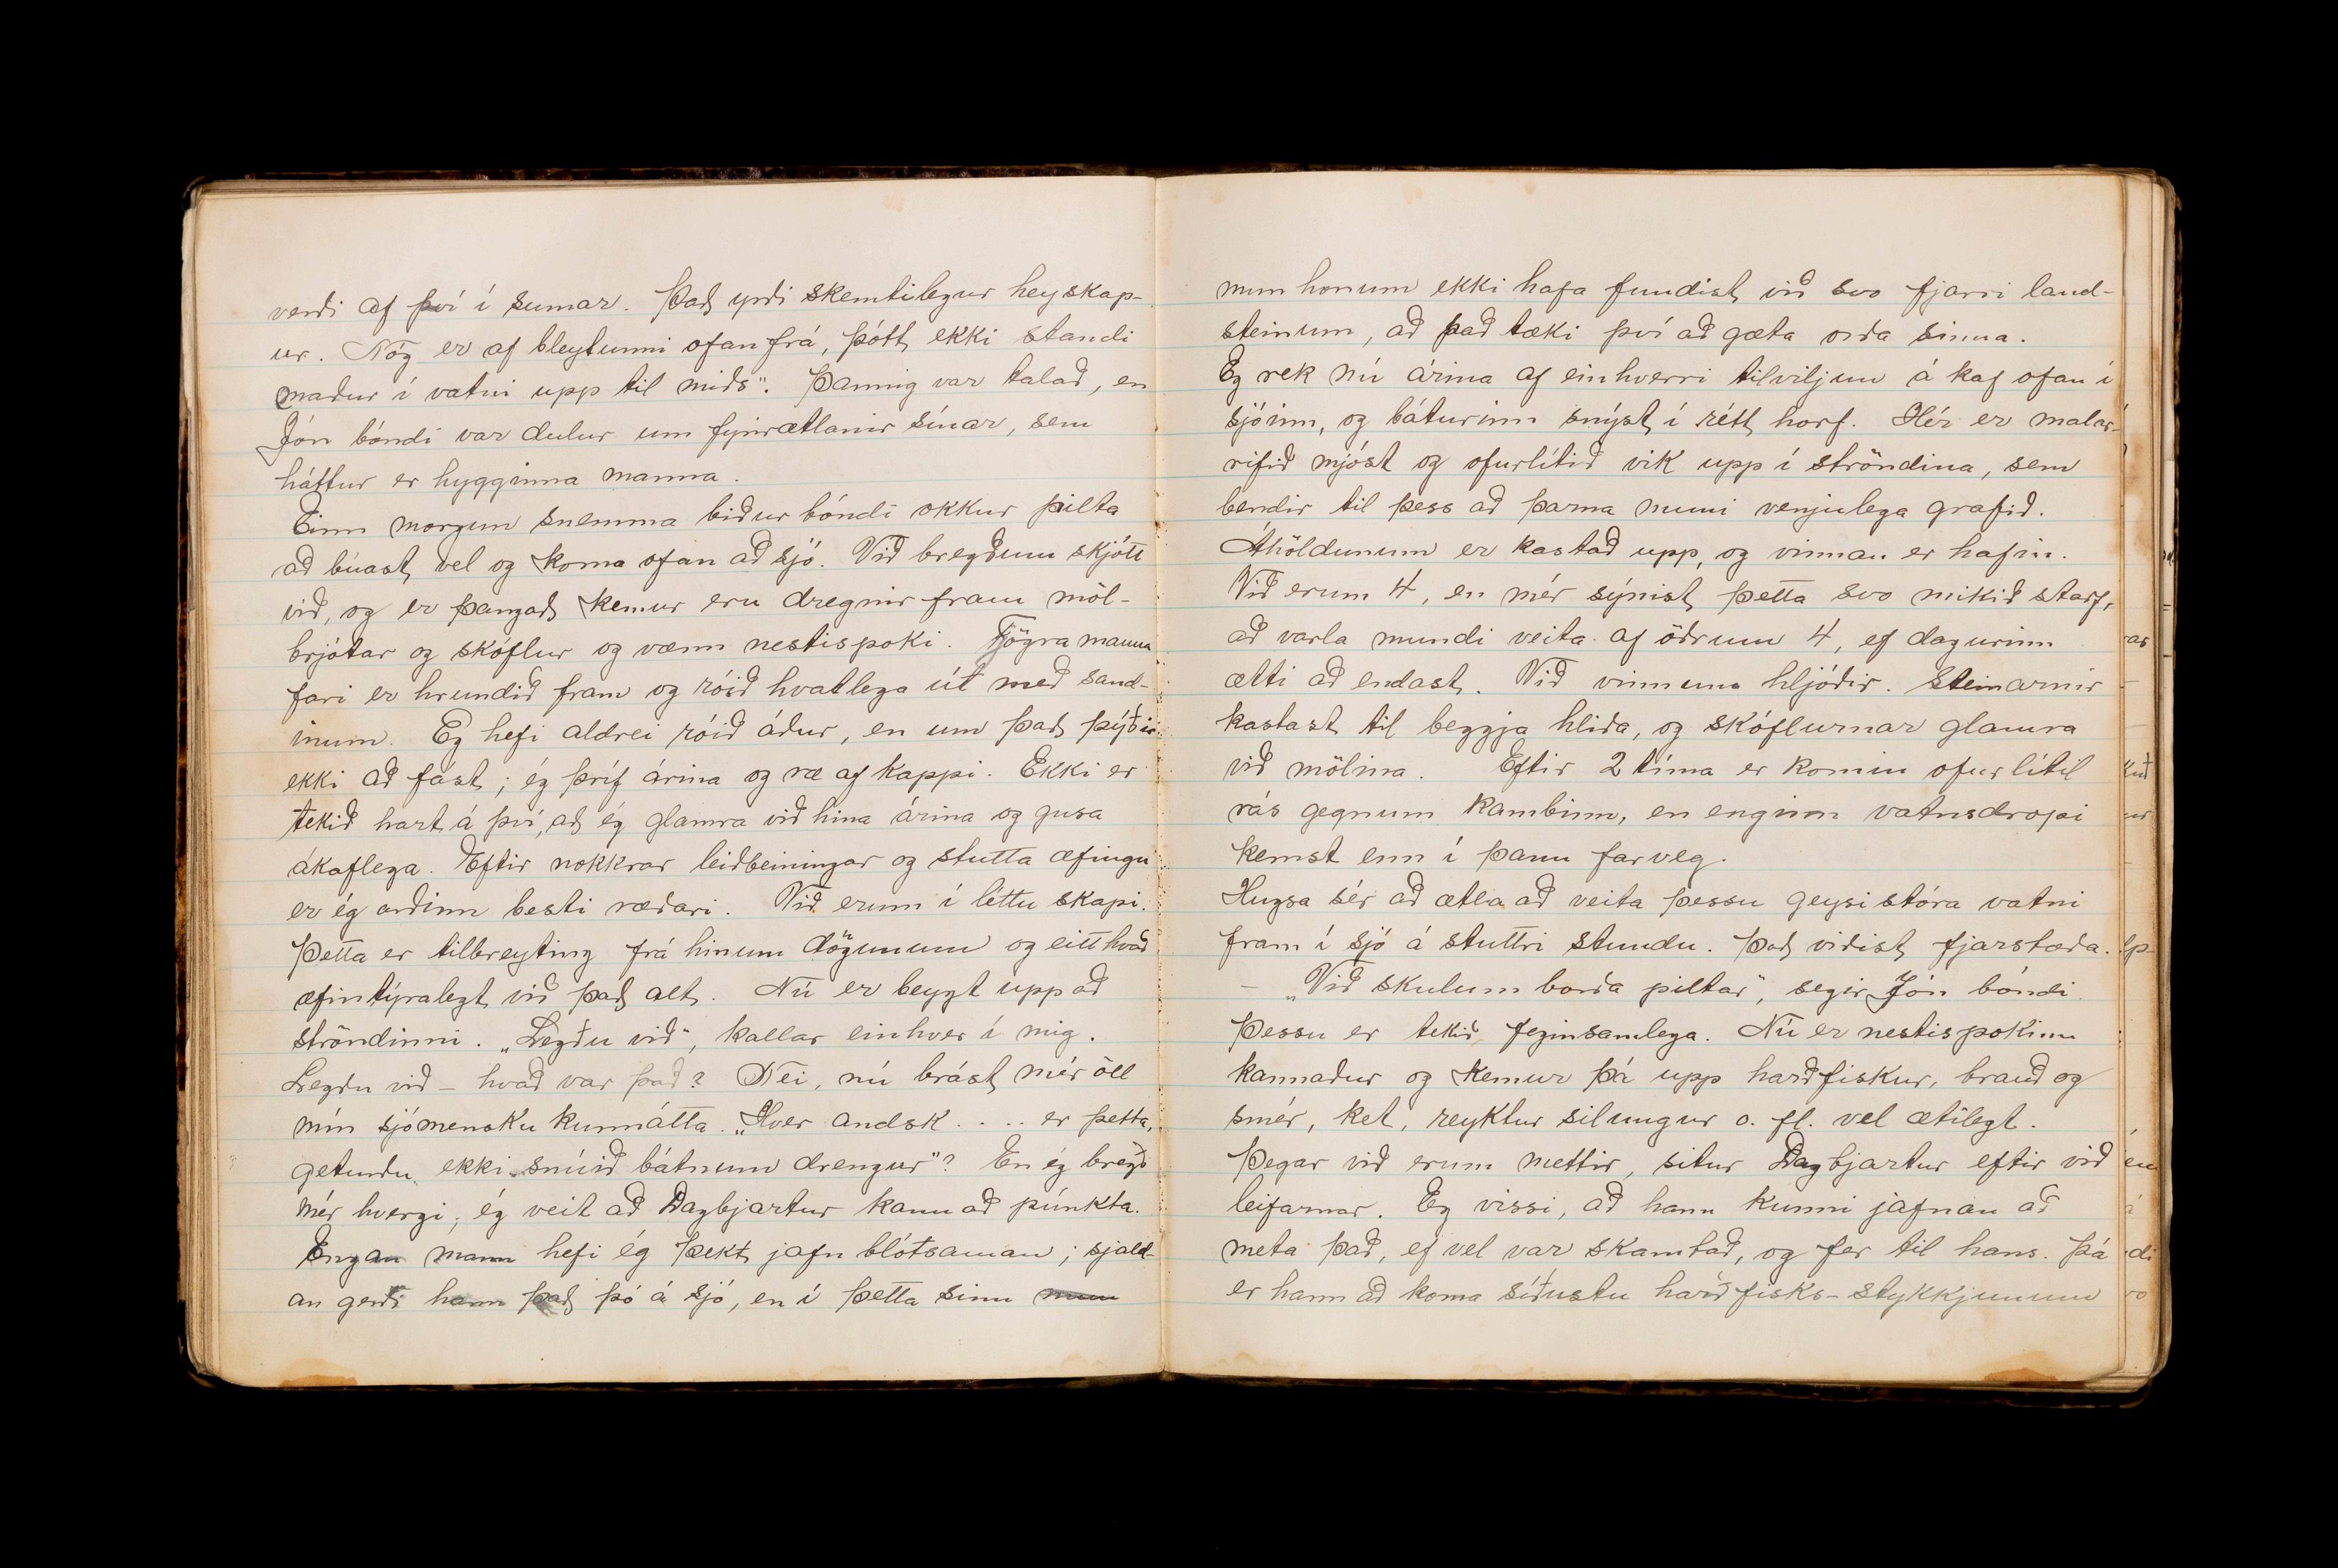 verði af því í sumar. Það yrði skemtilegur heyskap-
ur. Nóg er af bleytunni ofan frá, þótt ekki standi
maður í vatni upp til miðs". Þannig var talað, en
Jón bóndi var dulur um fyrirætlanir sínar, sem
háttur er hygginna manna.
Einn morgun snemma biður bóndi okkur pilta
að búast vel og koma ofan að sjó. Við bregðum skjótt
við, og er þangað kemur eru dregnir fram möl-
brjótar og skóflur og vænn nestispoki. Fjögra manna
fari er hrundið fram og róið hvatlega út með sand-
inum. Eg hefi aldrei róið áður, en um það þýðir
ekki að fást; ég þríf árina og ræ af kappi. Ekki er
tekið hart á því, að ég glamra við hina árina og gusa
ákaflega. Eftir nokkrar leiðbeiningar og stutta æfingu
er ég orðinn besti ræðari. Við erum í léttu skapi.
Þetta er tilbreyting frá hinum dögunum og eitthvað
æfintýralegt við það alt. Nú er beygt upp að
ströndinni. „Legðu við", kallar einhver í mig.
Legðu við – hvað var það? Nei, nú brást mér öll
mín sjómensku kunnátta. „Hver andsk.... er þetta,
geturðu ekki snúið bátnum drengur"? En ég bregð
mér hvergi; ég veit að Dagbjartur kann að púnkta.
Engan mann hefi ég þekt jafn blótsaman; sjald-
an gerði hann það þó á sjó, en í þetta sinn mun
mun honum ekki hafa fundist við svo fjarri land-
steinum, að það tæki því að gæta orða sinna.
Eg rek nú árina af einhverri tilviljun á kaf ofan í
sjóinn, og báturinn snýst í rétt horf. Hér er malar-
rifið mjóst og ofurlítið vik upp í ströndina, sem
bendir til þess að þarna muni venjulega grafið.
Áhöldunum er kastað upp, og vinnan er hafin.
Við erum 4, en mér sýnist þetta svo mikið starf,
að varla mundi veita af öðrum 4, ef dagurinn
ætti að endast. Við vinnum hljóðir. Steinarnir
kastast til beggja hliða, og skóflurnar glamra
við mölina. Eftir 2 tíma er komin ofurlítil
rás gegnum kambinn, en enginn vatnsdropi
kemst enn í þann farveg.
Hugsa sér að ætla að veita þessu geysistóra vatni
fram í sjó á stuttri stundu. Það virðist fjarstæða.
– „Við skulum borða piltar", segir Jón bóndi.
Þessu er tekið feginsamlega. Nú er nestispokinn
kannaður og kemur þá upp harðfiskur, brauð og
smér, ket, reyktur silungur o. fl. vel ætilegt.
Þegar við erum mettir, situr Dagbjartur eftir við
leifarnar. Eg vissi, að hann kunni jafnan að
meta það, ef vel var skamtað, og fer til hans. Þá
er hann að koma síðustu harðfisks-stykkjunum